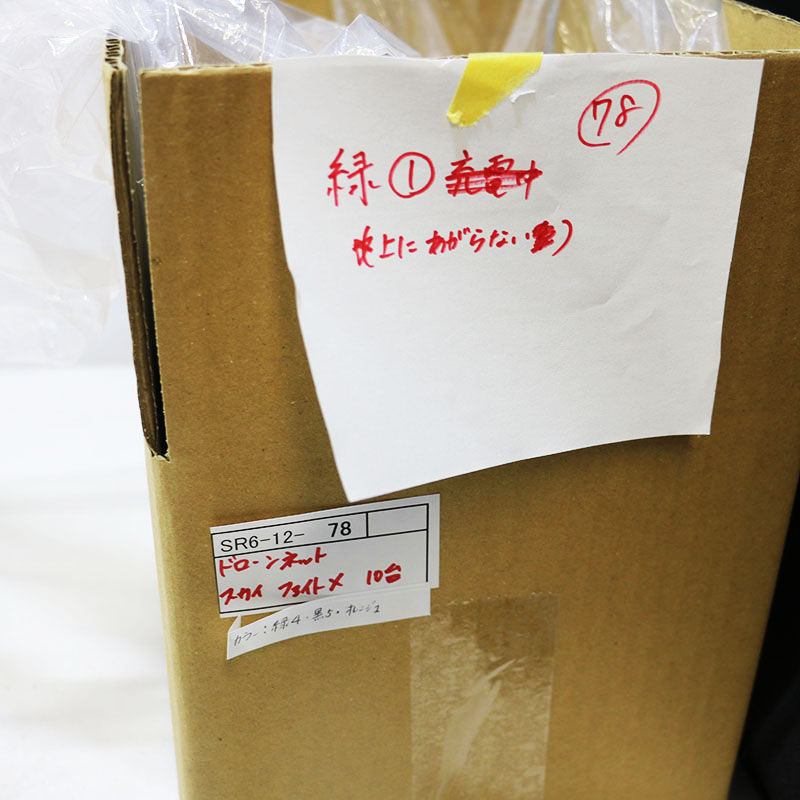 78
緑 ① 充電中
上に あがらない)
SR6-12- 78
ドローンネット
スカイ ファイトX 10台
カラー:緑4・黒5・オレンジ1